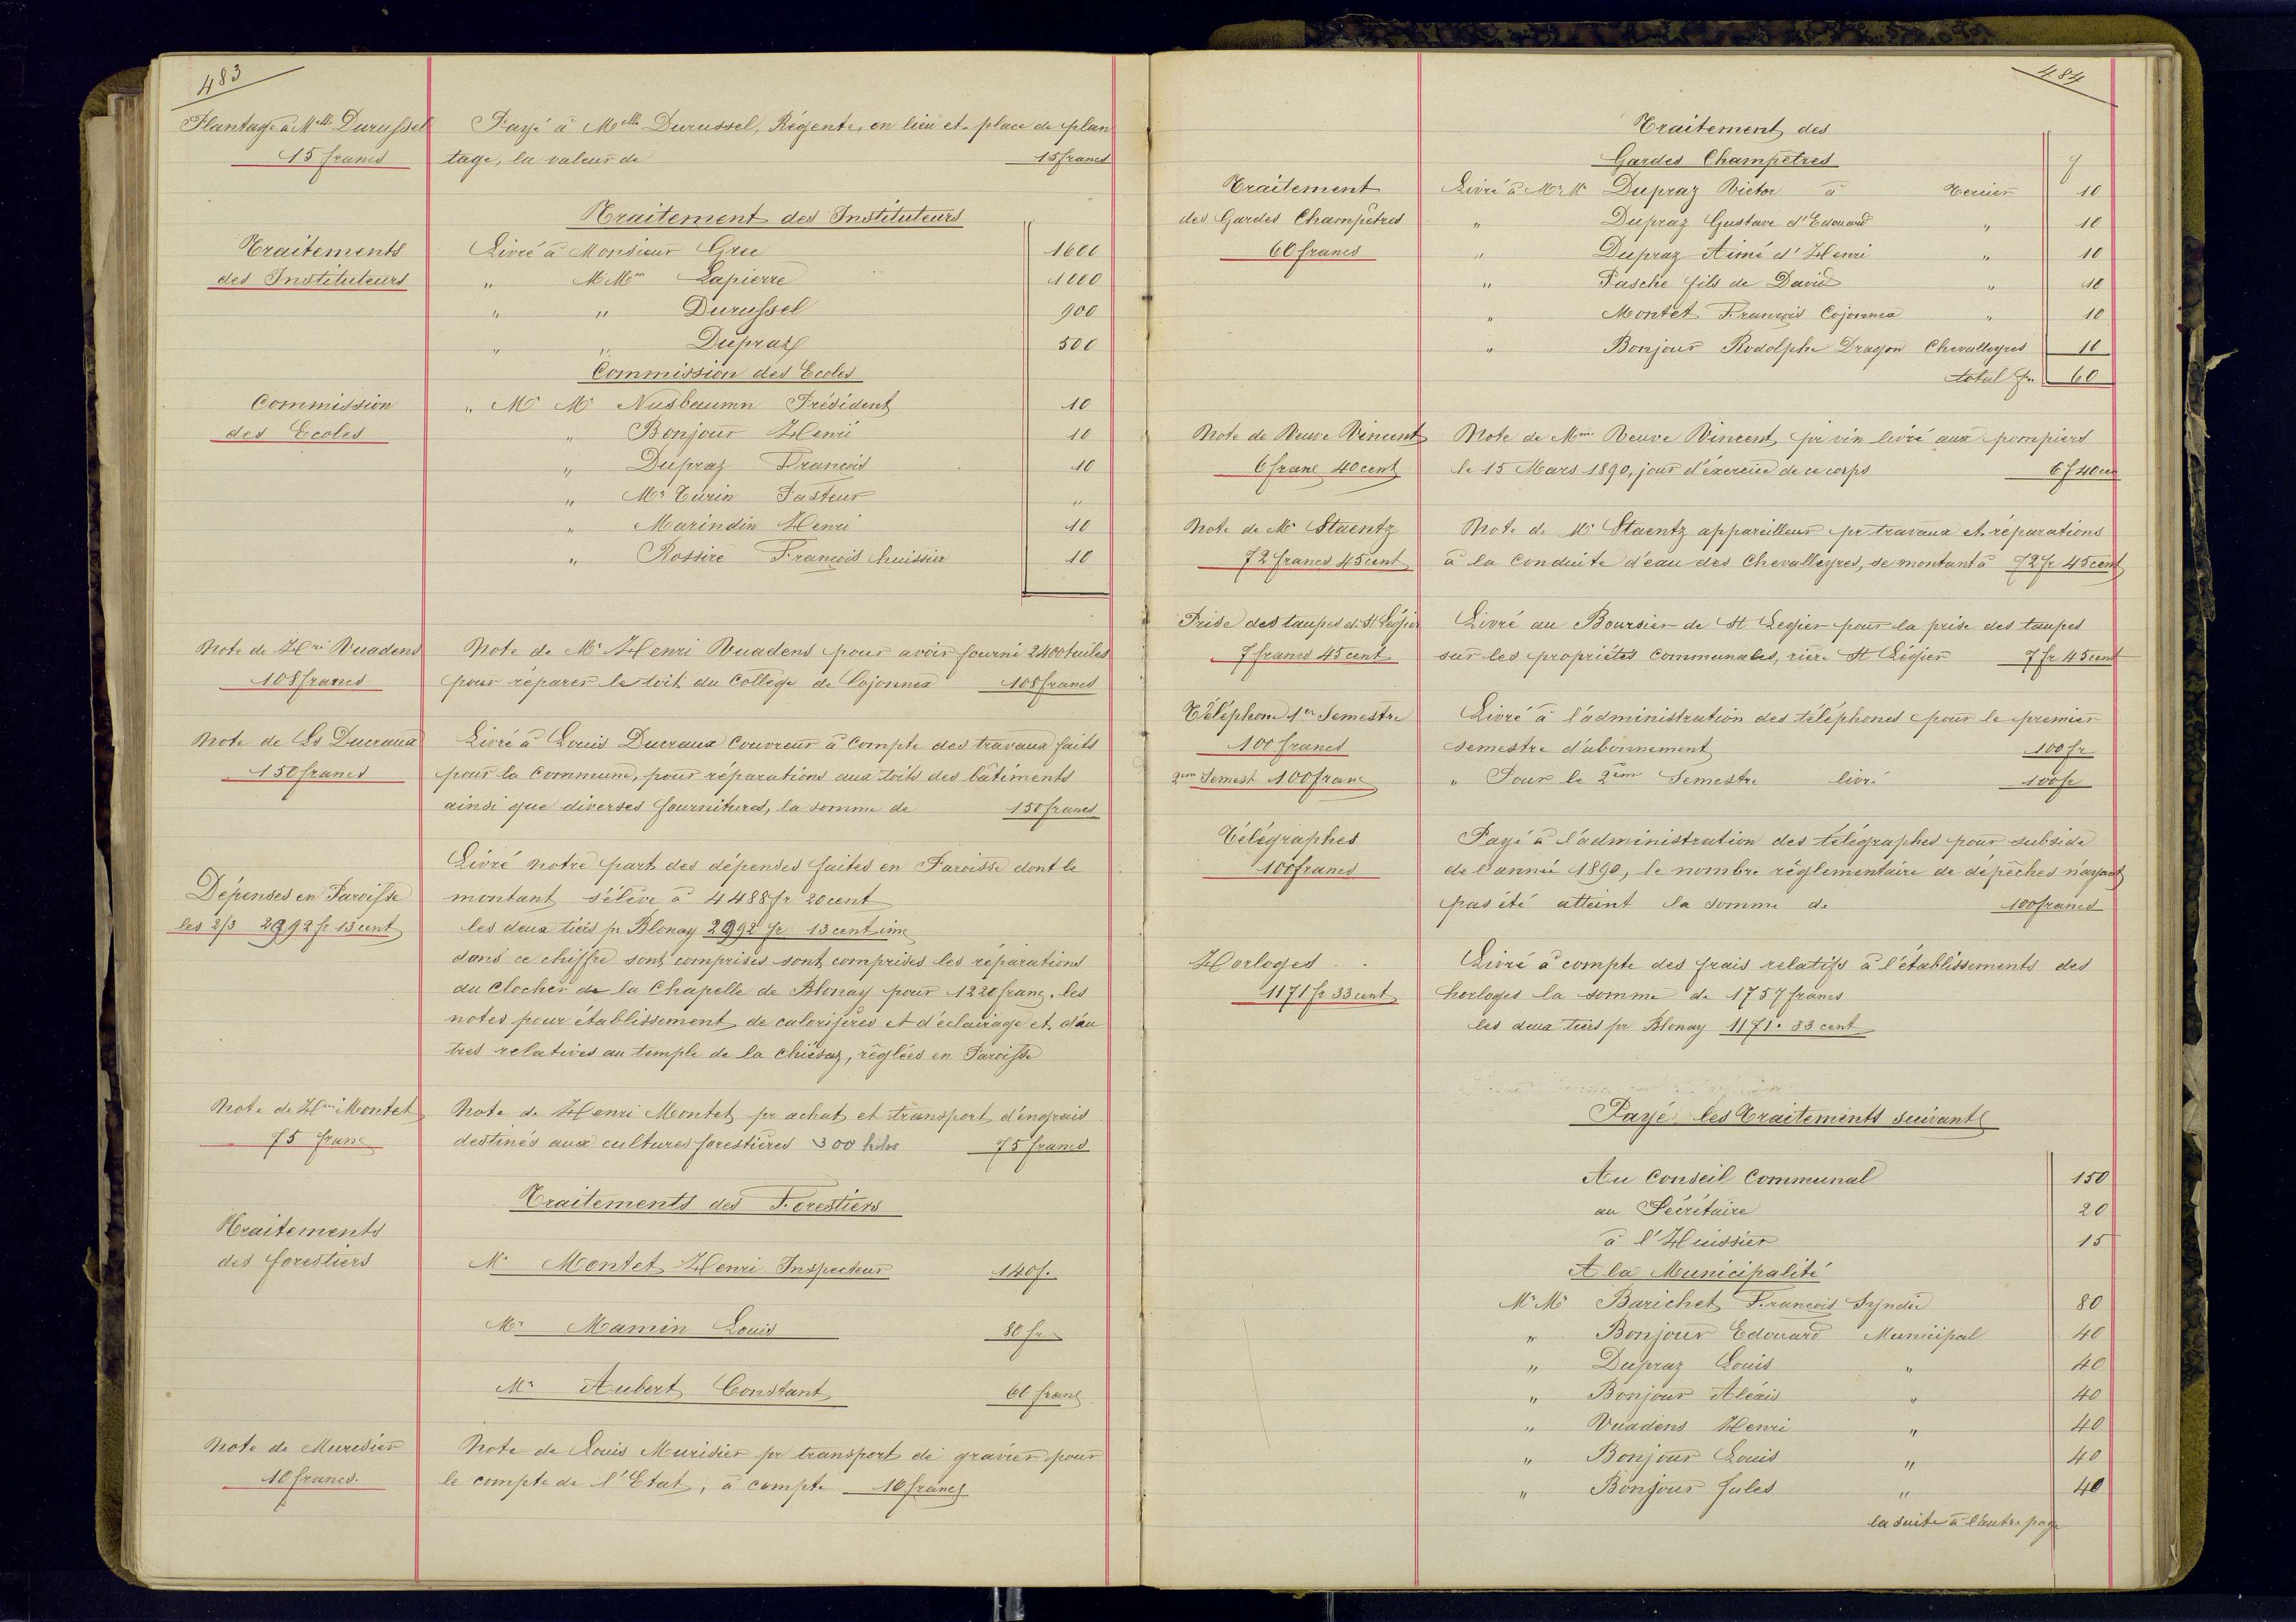 483
Plantage à Melle Durussel
15 francs
Payé à Melle Durussel, Régente, en lieu et place de plan
tage, la valeur de 15 francs
Traitement des Instituteurs
Traitements
des Instituteurs
Livré à Monsieur Grec 1600
" M. Mm Lapierre 1000
" " Durussel 900
" " Dupraz 500
Commission des Ecoles
Commission
des Ecoles
" Mr Mr Nusbaumn Président 10
" Bonjour Henri 10
" Dupraz François 10
" Mr Turin Pasteur "
" Marindin Henri 10
" Rossire François huissier 10
Note de Hri Vuadens
108 francs
Note de Mr Henri Vuadens pour avoir fourni 2400 tuiles
pour réparer le toit du Collège de Cojonnex 108 francs
Note de Ls Ducraux
150 francs
Livré à Louis Ducraux Couvreur à Compte des travaux faits
pour la Commune, pour réparations aux toits des bâtiments
ainsi que diverses fournitures, la somme de 150 francs
Dépenses en Paroisse
les 2/3 2992 fr 13 cent
Livré notre part des dépenses faites en Paroisse dont le
montant s'élève à 4488 fr 20 cent
les deux tiers pr Blonay 2992 fr 13 centime
dans ce chiffre sont comprises sont comprises les réparations
du clocher de la Chapelle de Blonay pour 1220 franc. les
notes pour établissement de calorifères et d'éclairage et d'au
tres relatives au temple de la Chiésaz, réglées en Paroisse
Note de Hri Montet
75 franc
Note de Henri Montet pr achat et transport d'engrais
destinés aux cultures forestières 300 kilos 75 francs
Traitements des Forestiers
Traitements
des forestiers
Mr Montet Henri Inspecteur 140 f.
Mr Mamin Louis 80 fr
Mr Aubert Constant 60 franc
Note de Muresier
10 francs.
Note de Louis Murisier pr transport de gravier pour
le compte de l'Etat, à compte 10 francs
484
Traitement des
Gardes Champêtres
Traitement
des Gardes Champêtres
60 francs
f
Livré à Mr Mr Dupraz Victor à Tercier 10
" Dupraz Gustave d'Edouard " 10
" Dupraz Aimé d'Henri " 10
" Pasche fils de David " 10
" Montet François Cojonnex " 10
" Bonjour Rodolphe Dragon Chevalleyres 10
total fr. 60
Note de Veuve Vincent
6 franc 40 cent
Note de Mme Veuve Vincent, pr vin livré aux pompiers
le 15 Mars 1890, jour d'éxercice de ce corps 6 f 40 cen
Note de Mr Staentz
72 francs 45 cent
Note de Mr Staentz appareilleur pr travaux et réparations
à la Conduite d'eau des Chevalleyres, se montant à 72 fr 45 cent
Prise des taupes d. St Légier
7 francs 45 cent
Livré au Boursier de St Legier pour la prise des taupes
sur les propriétés Communales, rière St Légier 7 fr 45 cent
Téléphone 1er Semestre
100 francs
Livré à l'administration des téléphones pour le premier
semestre d'abonnement 100 fr
2em Semest 100 franc
" Pour le 2em Semestre livré 100 fr
Télégraphes
100 francs
Payé à l'administration des télégraphes pour subside
de l'année 1890, le nombre réglementaire de dépêches n'ayant
pas été atteint la somme de 100 francs
Horloges
1171 fr 33 cent
Livré à compte des frais relatifs à l'établissements des
horloges la somme de 1757 francs
les deux tiers pr Blonay 1171. 33 cent
Payé les Traitements suivants
Au Conseil Communal 150
au Sécrétaire 20
à l'Huissier 15
A la Municipalité
Mr Mr Barichet François Syndic 80
" Bonjour Edouard Municipal 40
" Dupraz Louis " 40
" Bonjour Aléxis " 40
" Vuadens Henri " 40
" Bonjour Louis " 40
" Bonjour Jules " 40
la suite à l'autre page